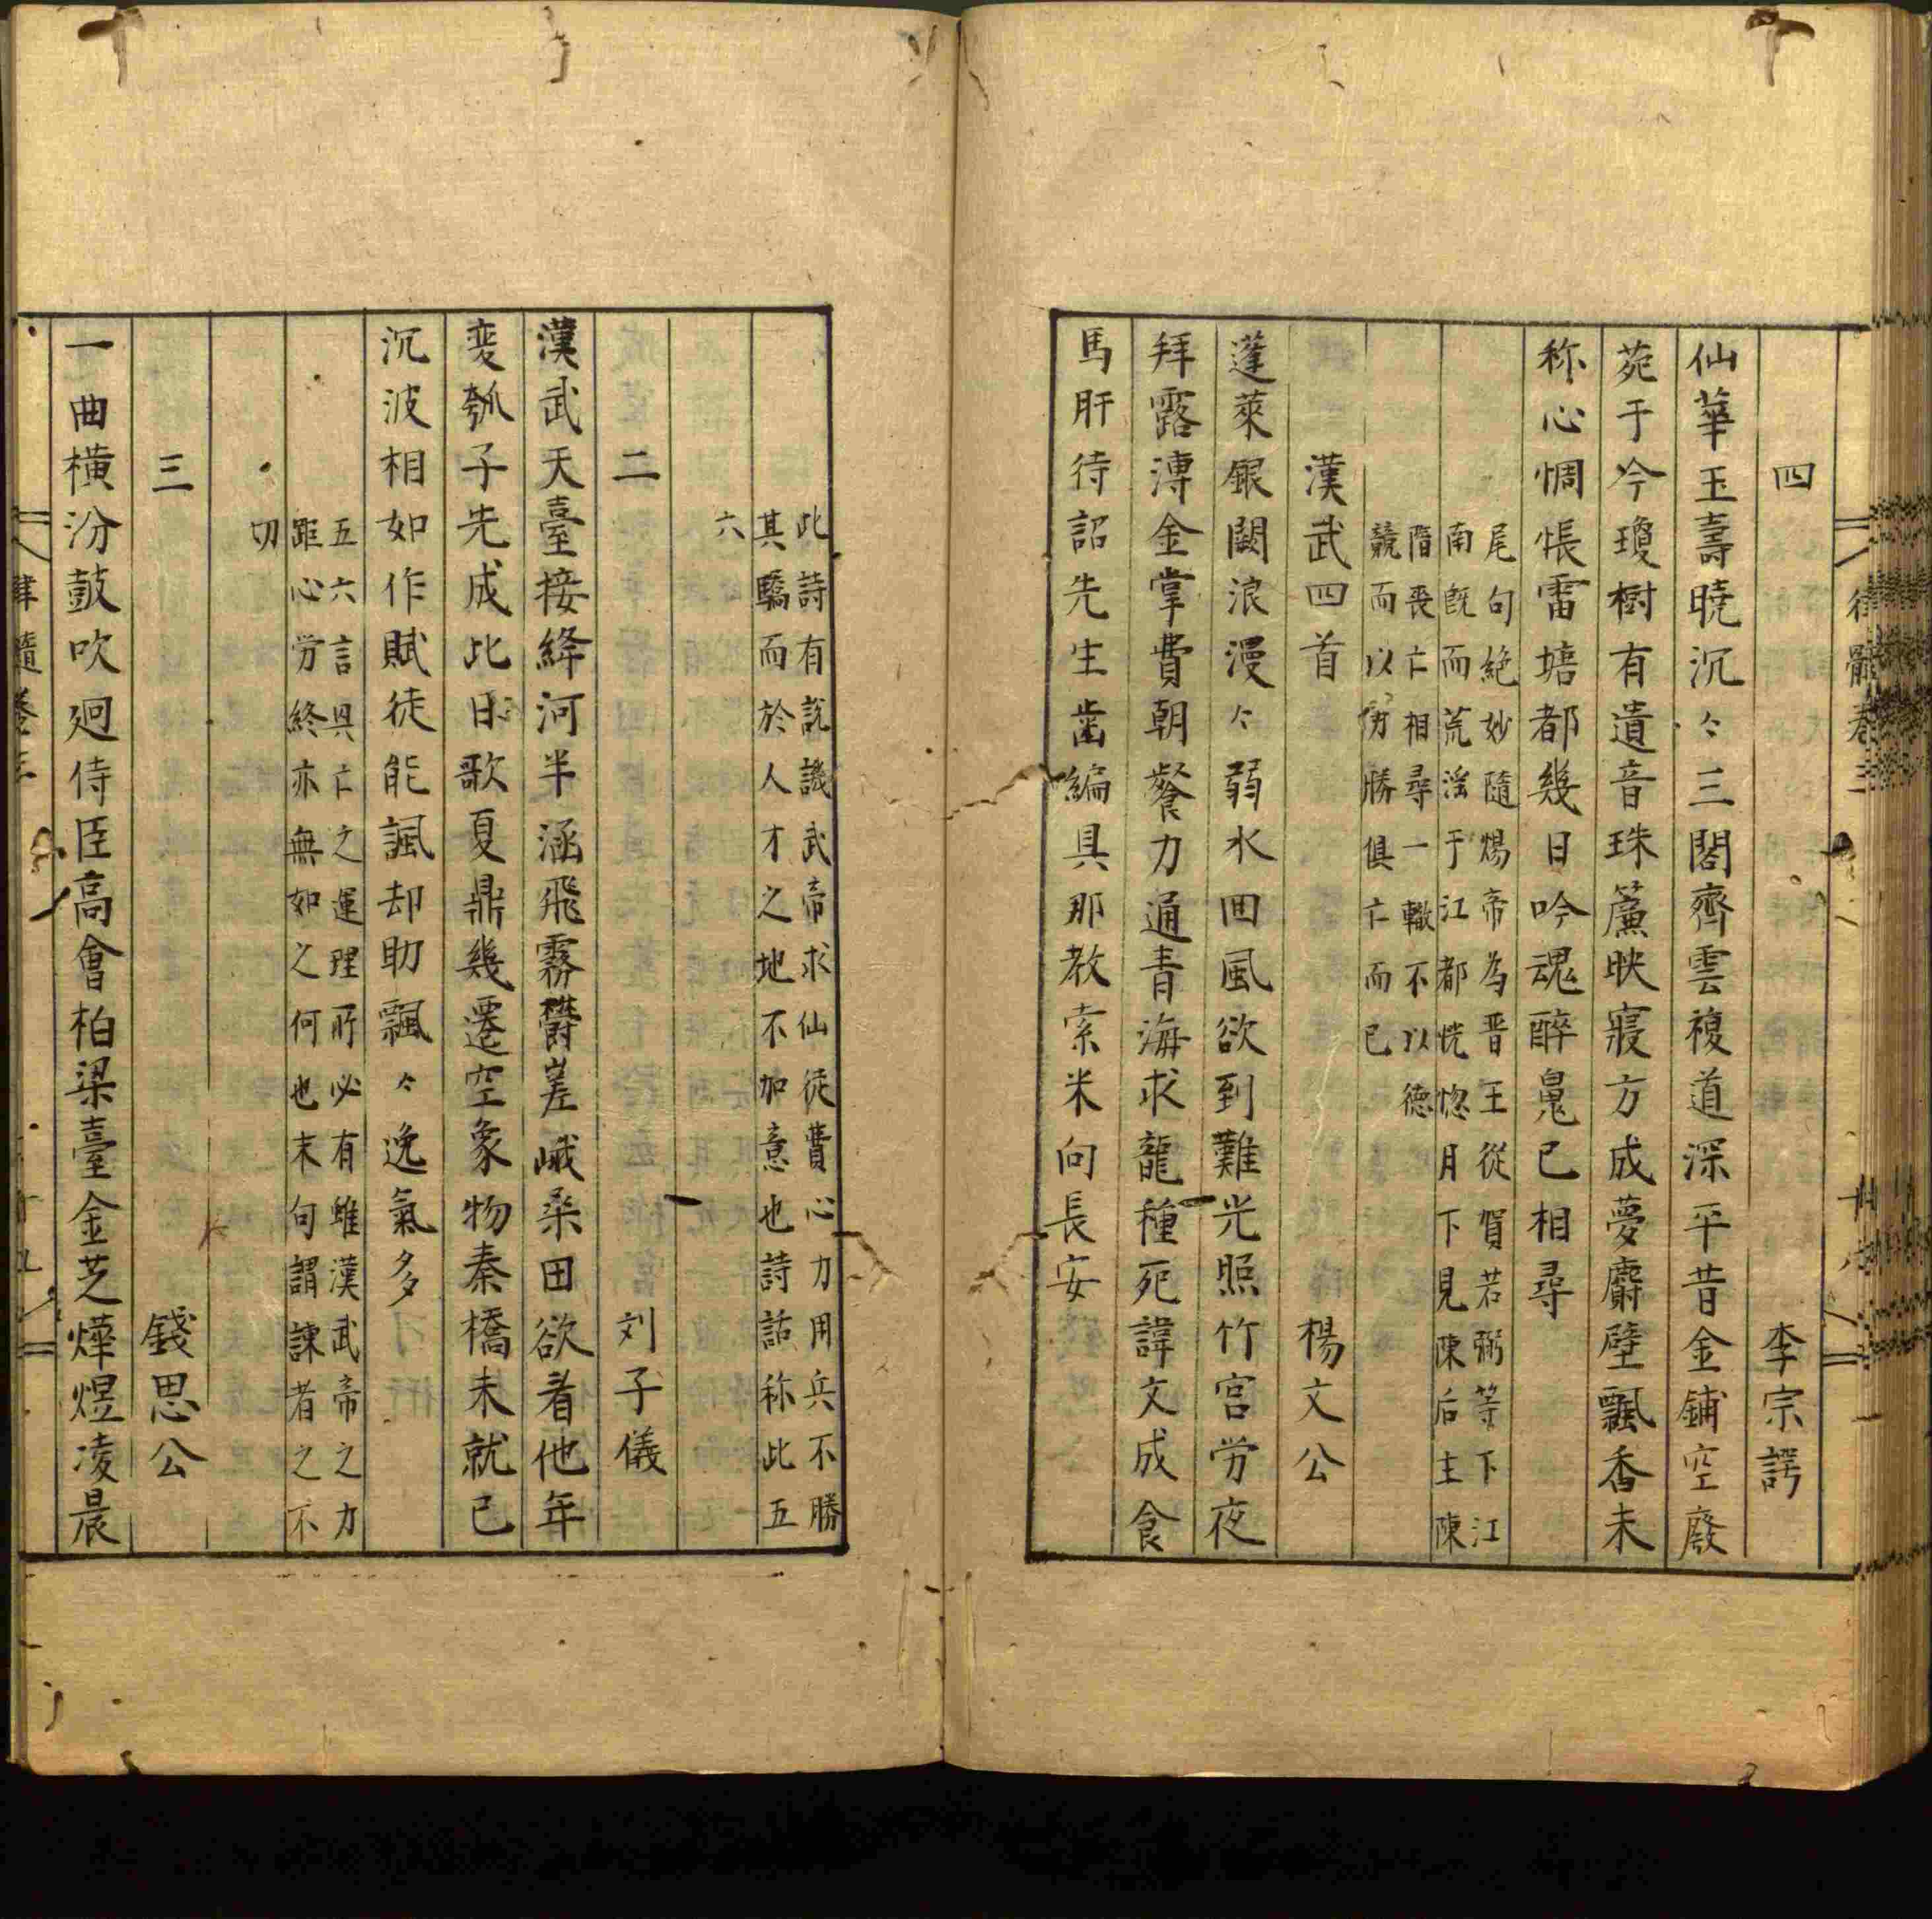 四 李宗諤
仙華玉壽曉沉々三閣齊雲複道深平昔金鋪空廢
苑于今瓊樹有遺音珠簾映寢方成夢麝壁飄香未
称心惆悵雷塘都幾日吟魂醉鬼已相尋
尾句絶妙隨煬帝為晋王從賀若弼等下江
南旣而荒滛于江都恍惚月下見陳后主陳
隋喪亡相尋一轍不以德
競而以力勝俱亡而已
漢武四首 楊文公
蓬萊銀闕浪漫々弱水囬風欲到難光照竹宮労夜
拜露漙金掌費朝餐力通青海求龍種死諱文成食
馬肝待詔先生齒編具那教索米向長安
律髓卷三
此詩有說譏武帝求仙徒費心力用兵不勝
其驕而於人才之地不加意也詩話称此五
六
二 刘子儀
漢武天臺接絳河半涵飛霧欝嵳峨桒田欲看他年
変瓠子先成此日歌夏鼎幾遷空象物秦橋未就已
沉波相如作賦徒能諷却助飄々逸氣多
五六言具亡之運理所必有雖漢武帝之力
距心労終亦無如之何也末句謂諫者之不
切
三 錢思公
一曲橫汾鼓吹廻侍臣高會柏梁臺金芝燁煜凌晨